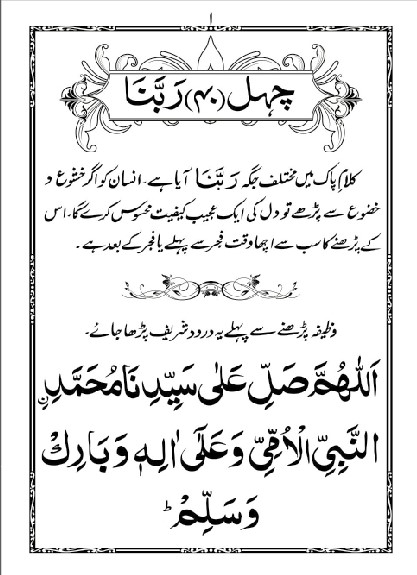 ۱
چہل (۴۰) رَبَّنَا
کلامِ پاک میں مختلف جگہ رَبَّنَا آیا ہے۔ انسان کو اگر خشوع و
خضوع سے پڑھے تو دل کی ایک عجیب کیفیت محسوس کرے گا۔ اس
کے پڑھنے کا سب سے اچھا وقت فجر سے پہلے یا فجر کے بعد ہے۔
وظیفہ پڑھنے سے پہلے یہ درود شریف پڑھا جائے۔
اَللّٰهُمَّ صَلِّ عَلٰى سَيِّدِنَا مُحَمَّدِ ۨ
النَّبِيِّ الْاُمِّيِّ وَعَلٰٓى اٰلِهٖ وَبَارِكْ
وَسَلِّمْ ؕ